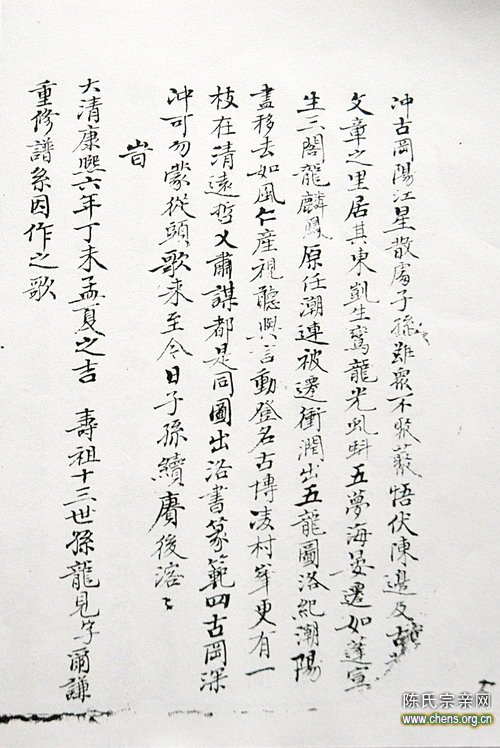 冲古岡陽江星散處子孫雖衆不聚叢悟伏陳邊及古
文章之里居其東凱生鸞龍光虬蚪五夢海晏遷如蓬宣
生三閣龍麟鳳原任潮連被遷衝潤出五龍圖洛紀潮陽
盡移去如風仁産視聽興言動登名古博凌村牟更有一
枝在清遠哲乂肅謀都是同圖出洛書篆範四古岡深
冲可勿蒙從頭歌來至今日子孫續賡後溶
旹
大清康熙六年丁未孟夏之吉 壽祖十三世孫龍見字爾謙
重修譜系因作之歌
陈氏宗亲网
www.chens.org.cn